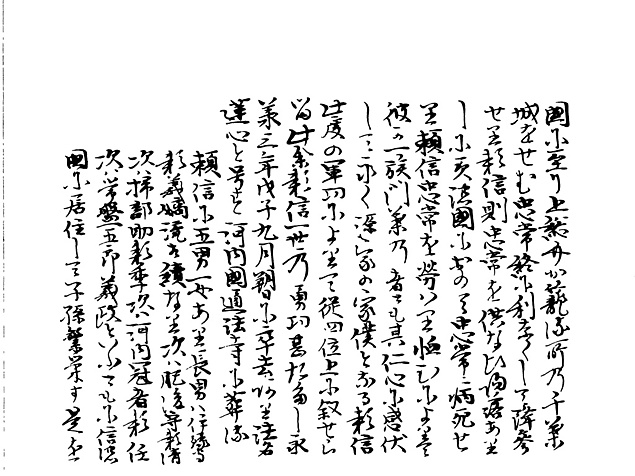 國に至り上総介か籠る所の千葉
城をせむ忠常終に利なくして降参
せり頼信則忠常を供なひ帰洛あり
しに美濃國にをのて忠常病死せ
り頼信忠常を労り恤むによりて
彼か一族門葉の者とも其仁心に感伏
してこと〳〵く源家の家僕となる頼信
此度の軍功によりて従四位上に叙せら
る此条頼信一世の勇功甚た多し永
承三年戊子九月朔日に卒去す法名
蓮心と号す河内國通法寺に葬る
頼信に五男一女あり長男は伊豫守
頼義嫡流を續なり次は肥後守頼清
次は掃部助頼季次は河内冠者頼任
次は常盤五郎義政といふともに信濃
國に居住して子孫繁栄す是を